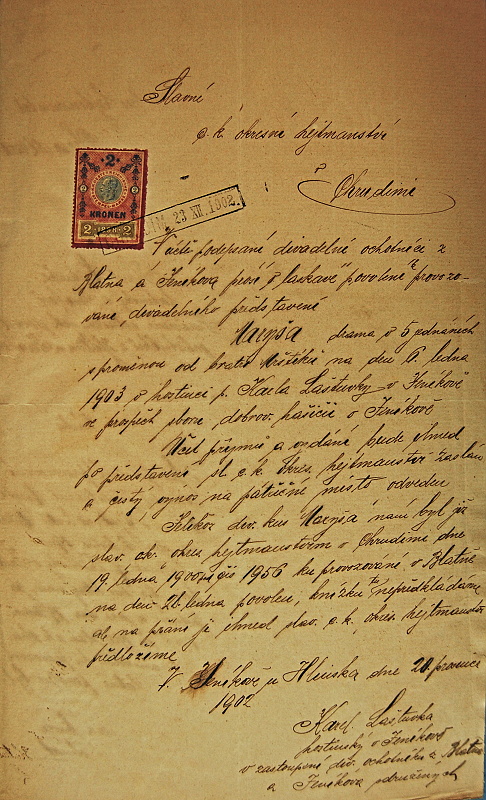 Slavné
c. k. okresné hejtmanství
v
Chrudimi
2
KRONEN
2 1898 2
23 XII. 1902.
Uctě podepsané divadelné ochotníci z
Blatna a Jeníkova prosí o laskavé povolené ku provozo-
váné divadelného představené
Maryša drama o 5 jednáních
s proměnou od bratří Mrštíků na den 6. ledna
1903 v hostinci p. Karla Laštůvky v Jeníkově
ve prospěch sboru dobrov. hasičů v Jeníkově
Účet příjmů a vydáné bude ihned
po představené sl. c. k. okres. hejtmanství zaslán
a čistý výnos na patřičné místo odveden
Jelikož div. kus Maryša nám byl již
slav. c.k. okres. hejtmanstvím v Chrudimi dne
19. ledna 1900 čís 1956 ku provozované v Blatně
na den 21. ledna povolen, knížku nepřikládáme
ale na přání ji ihned slav. c. k. okres hejtmanství
předložíme
V Jeníkově u Hlinska dne 20. prosince
1902
Karel Laštůvka
hostinský v Jeníkově
v zastoupené div. ochotníků z Blatna
a Jeníkova sdružených